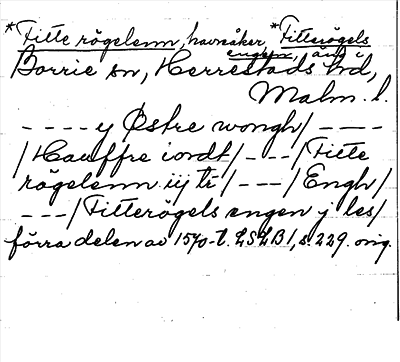 *Fitte rögelenn, havreåker, *Fitterögels
engen, äng i
Borrie sn, Herrestads hd,
Malm. l.
- - - - y Østre wongh/ - - - -
/Hauffre iordt/ - - - /Fitte
rögelenn iij tr/ - - - /Engh/
- - - /Fitterögels engen j les/
förra delen av 1570-t. LSLB1, s. 229. orig.